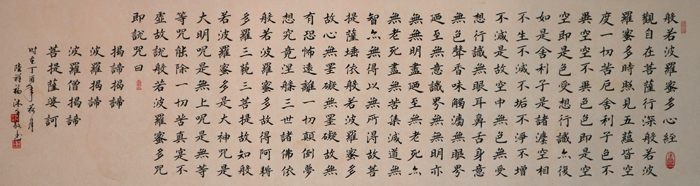 般若波羅蜜多心經
觀自在菩薩行深般若波
羅蜜多時照見五蘊皆空
度一切苦厄舍利子色不
異空空不異色色即是空
空即是色受想行識亦復
如是舍利子是諸灋空相
不生不滅不垢不淨不增
不減是故空中無色無受
想行識無眼耳鼻舌身意
無色聲香味觸灋無眼界
廼至無意識界無無明亦
無無明盡廼至無老死亦
無老死盡無苦集滅道無
智亦無得以無所得故菩
提薩埵依般若波羅蜜多
故心無罣礙無罣礙故無
有恐怖遠離一切顛倒夢
想究竟涅槃三世諸佛依
般若波羅蜜多故得阿耨
多羅三藐三菩提故知般
若波羅蜜多是大神咒是
大明咒是無上咒是無等
等咒能除一切苦真實不
虛故説般若波羅蜜多咒
即説咒曰
揭諦揭諦
波羅揭諦
波羅僧揭諦
菩提薩婆訶
时在丁酉年月
陸祥福沐手敬书